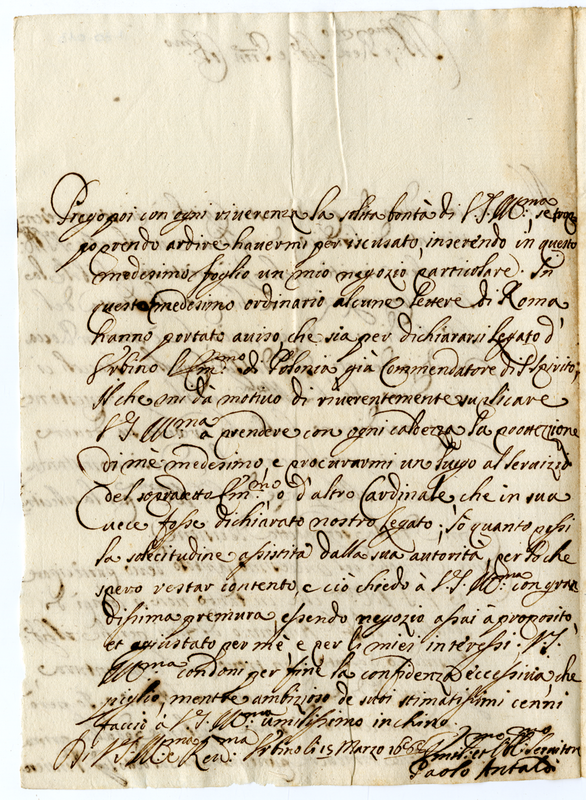 Prego poi con ogni riverenza la solita bontà di V.S. Ill.ma se trop
po prendo ardire havermi per iscusato, inserendo in questo
medesimo foglio un mio negozio particolare. In
questo medesimo ordinario alcune lettere di Roma
hanno portato aviso, che sia per dichiararsi legato d'
Urbino l'Em.mo di Polonia già Commendatore di S. Spirito,
Il che mi dà motivo di riverentemente suplicare
V.S. Ill.ma à prendere con ogni caldezza la protezzione
di mè medesimo, e procurarmi un luogo al servizio
del sopradetto Em.mo, o d'altro Cardinale che in sua
vece fosse dichiarato nostro legato; Sò quanto pessi
la solecitudine assistita dalla sua autorità, per lo che
spero restar contento, e ciò chiedo à V.S. Ill.ma con gran
dissima premura, essendo negozio assai à proposito
et agiustato per mè, e per li miei interessi. V.S.
Ill.ma condoni per fine la confidenza eccessiva, che
piglio, mentre ambizioso de suoi stimatissimi cenni
faccio à V.S. Ill.ma umilissimo inchino.
Di V.S. Ill.ma e Rev.ma Urbino li 15 Marzo
Servitor
Paolo Antaldi